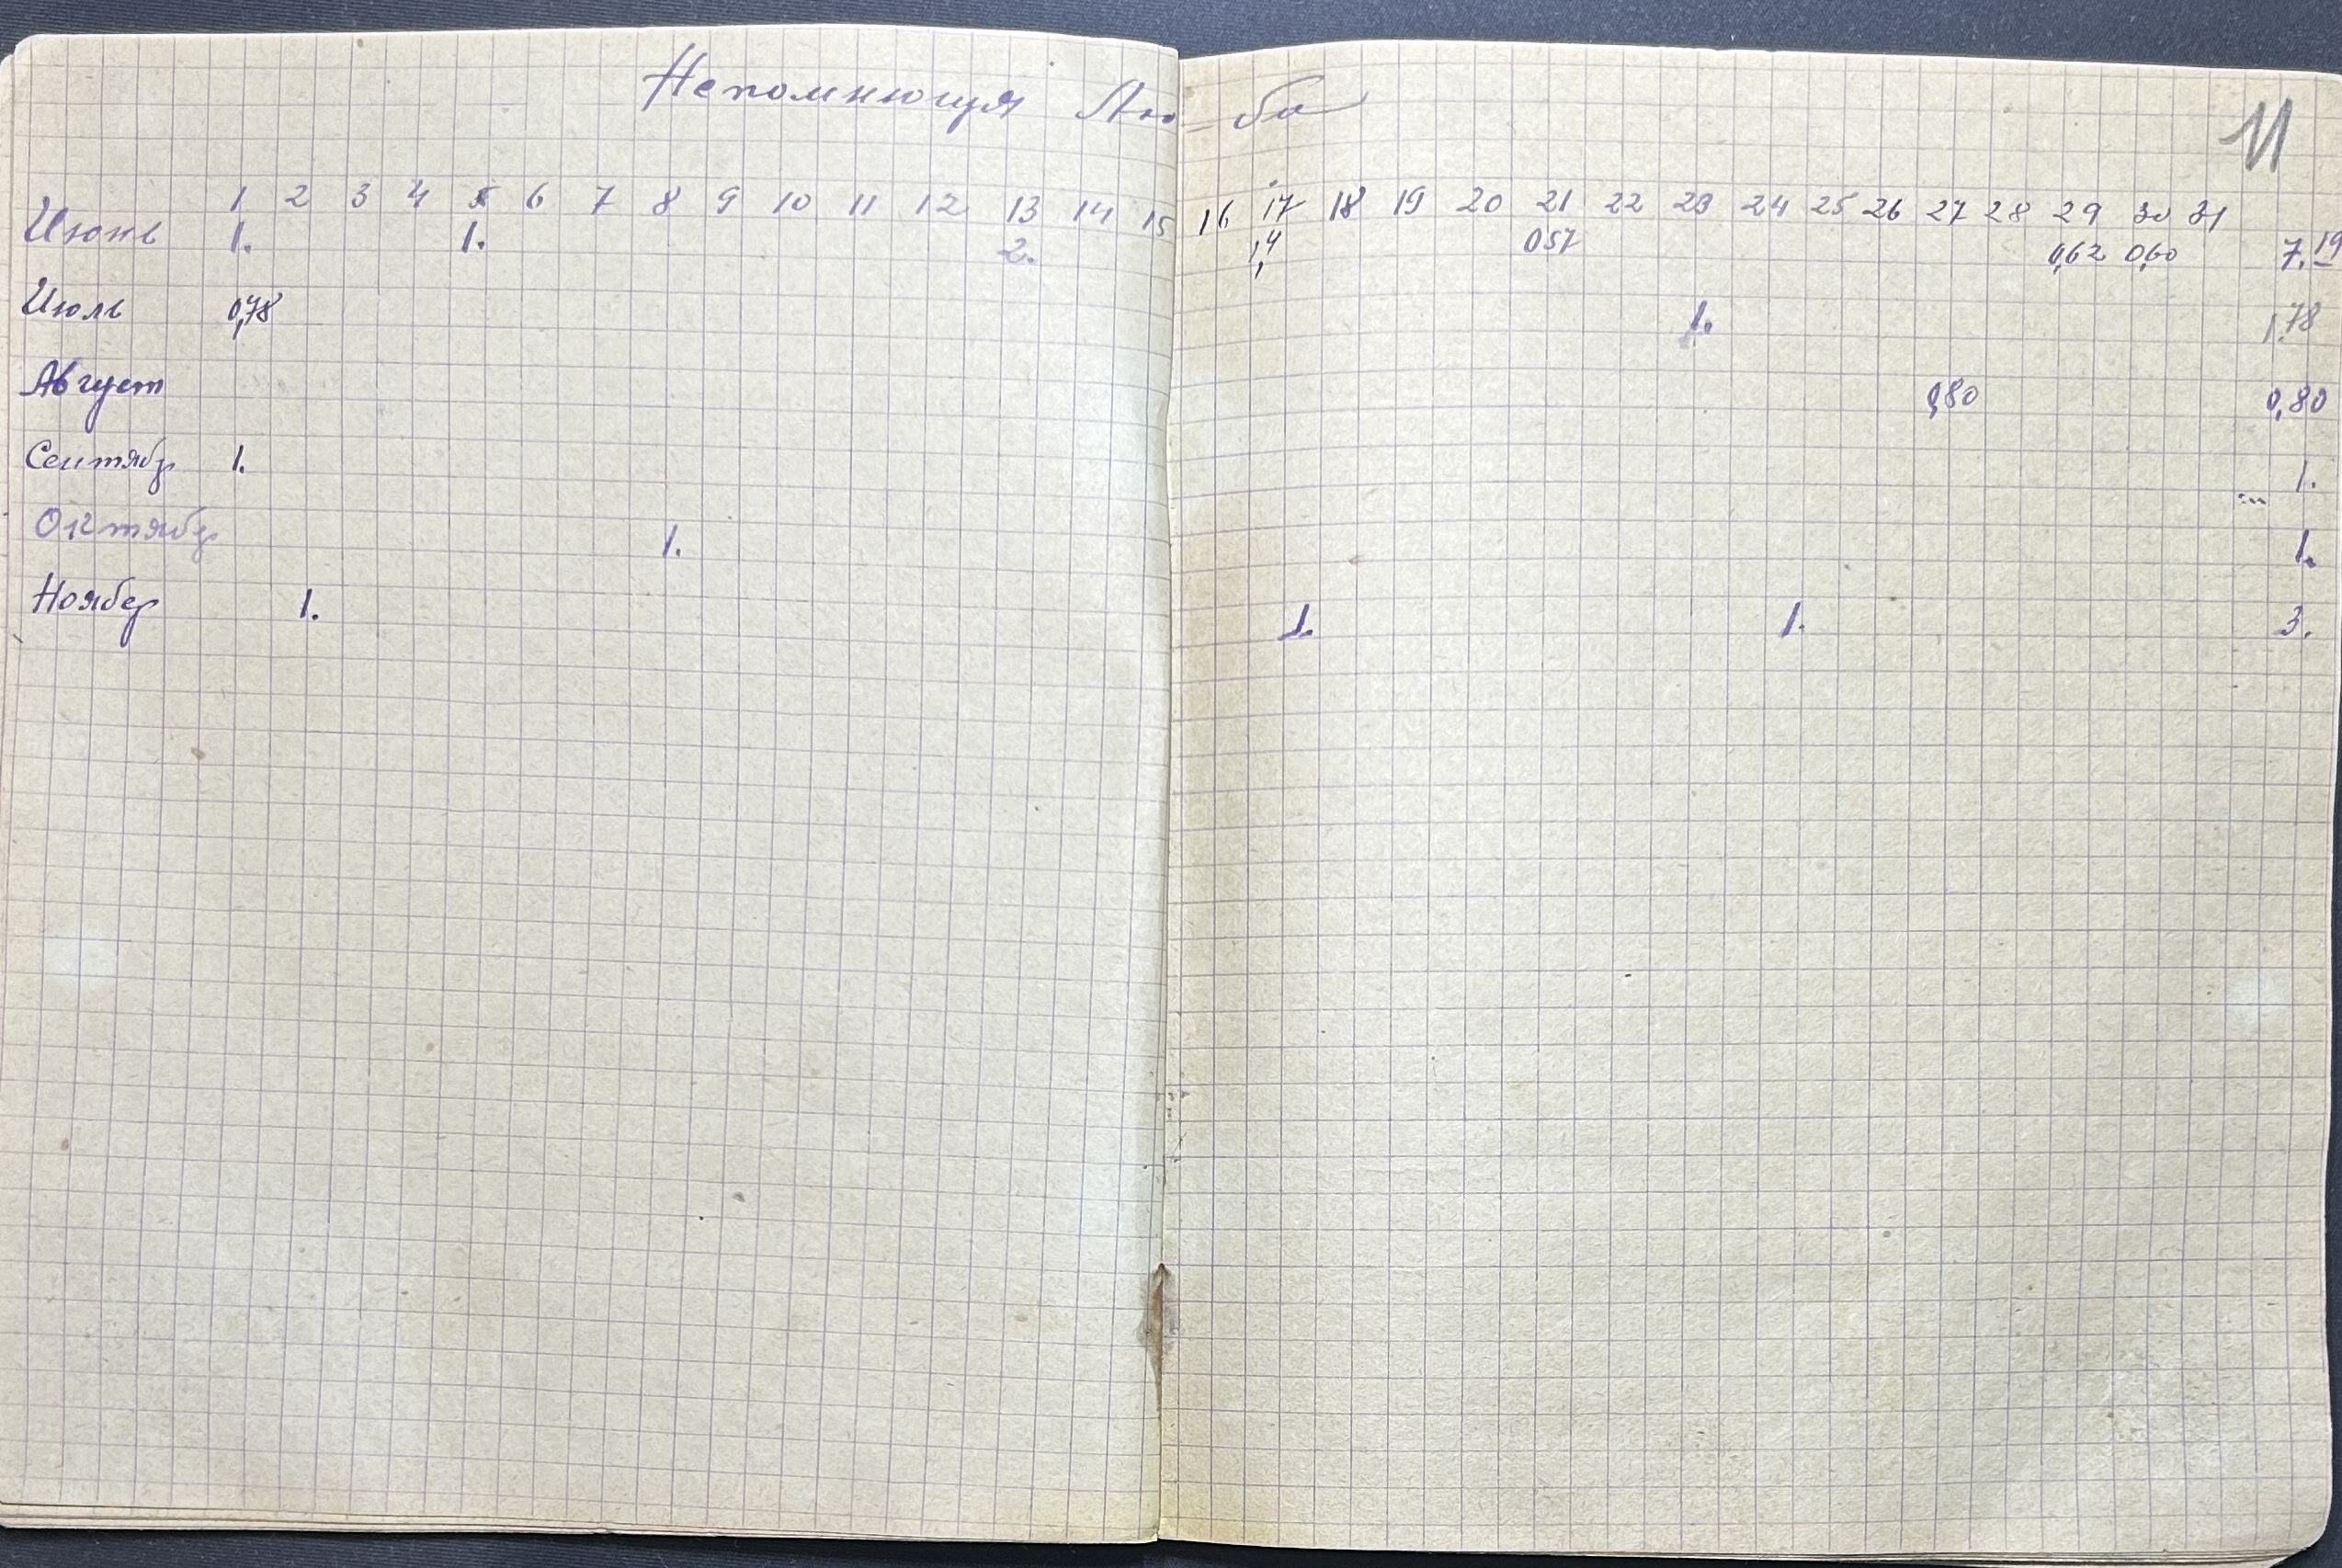 Непомнющя Лю-ба
11
1 2 3 4 5 6 7 8 9 10 11 12 13 14 15 16 17 18 19 20 21 22 23 24 25 26 27 28 29 30 31
Июнь 1. 1. 2. 1,4 057 0,62 0,60 7.19
Июль 0,78 1. 1,78
Август 0,80 0,80
Сентябр 1. 1.
Октябр 1. 1.
Ноябер 1. 1. 1. 3.